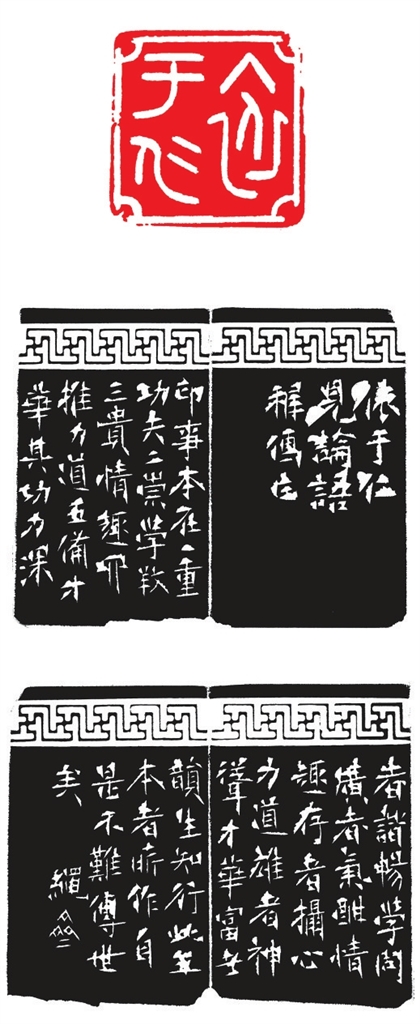 依于仁
依于仁
見論語
印事本在一重
功夫二崇學
三貴情趣四
推力道五備才
華其功力深
者諳暢學問
廣者氣酣情
趣存者攝心
力道雄者神
聳才華富者
韻生知行此五
本者所作自
是不難傳世
矣